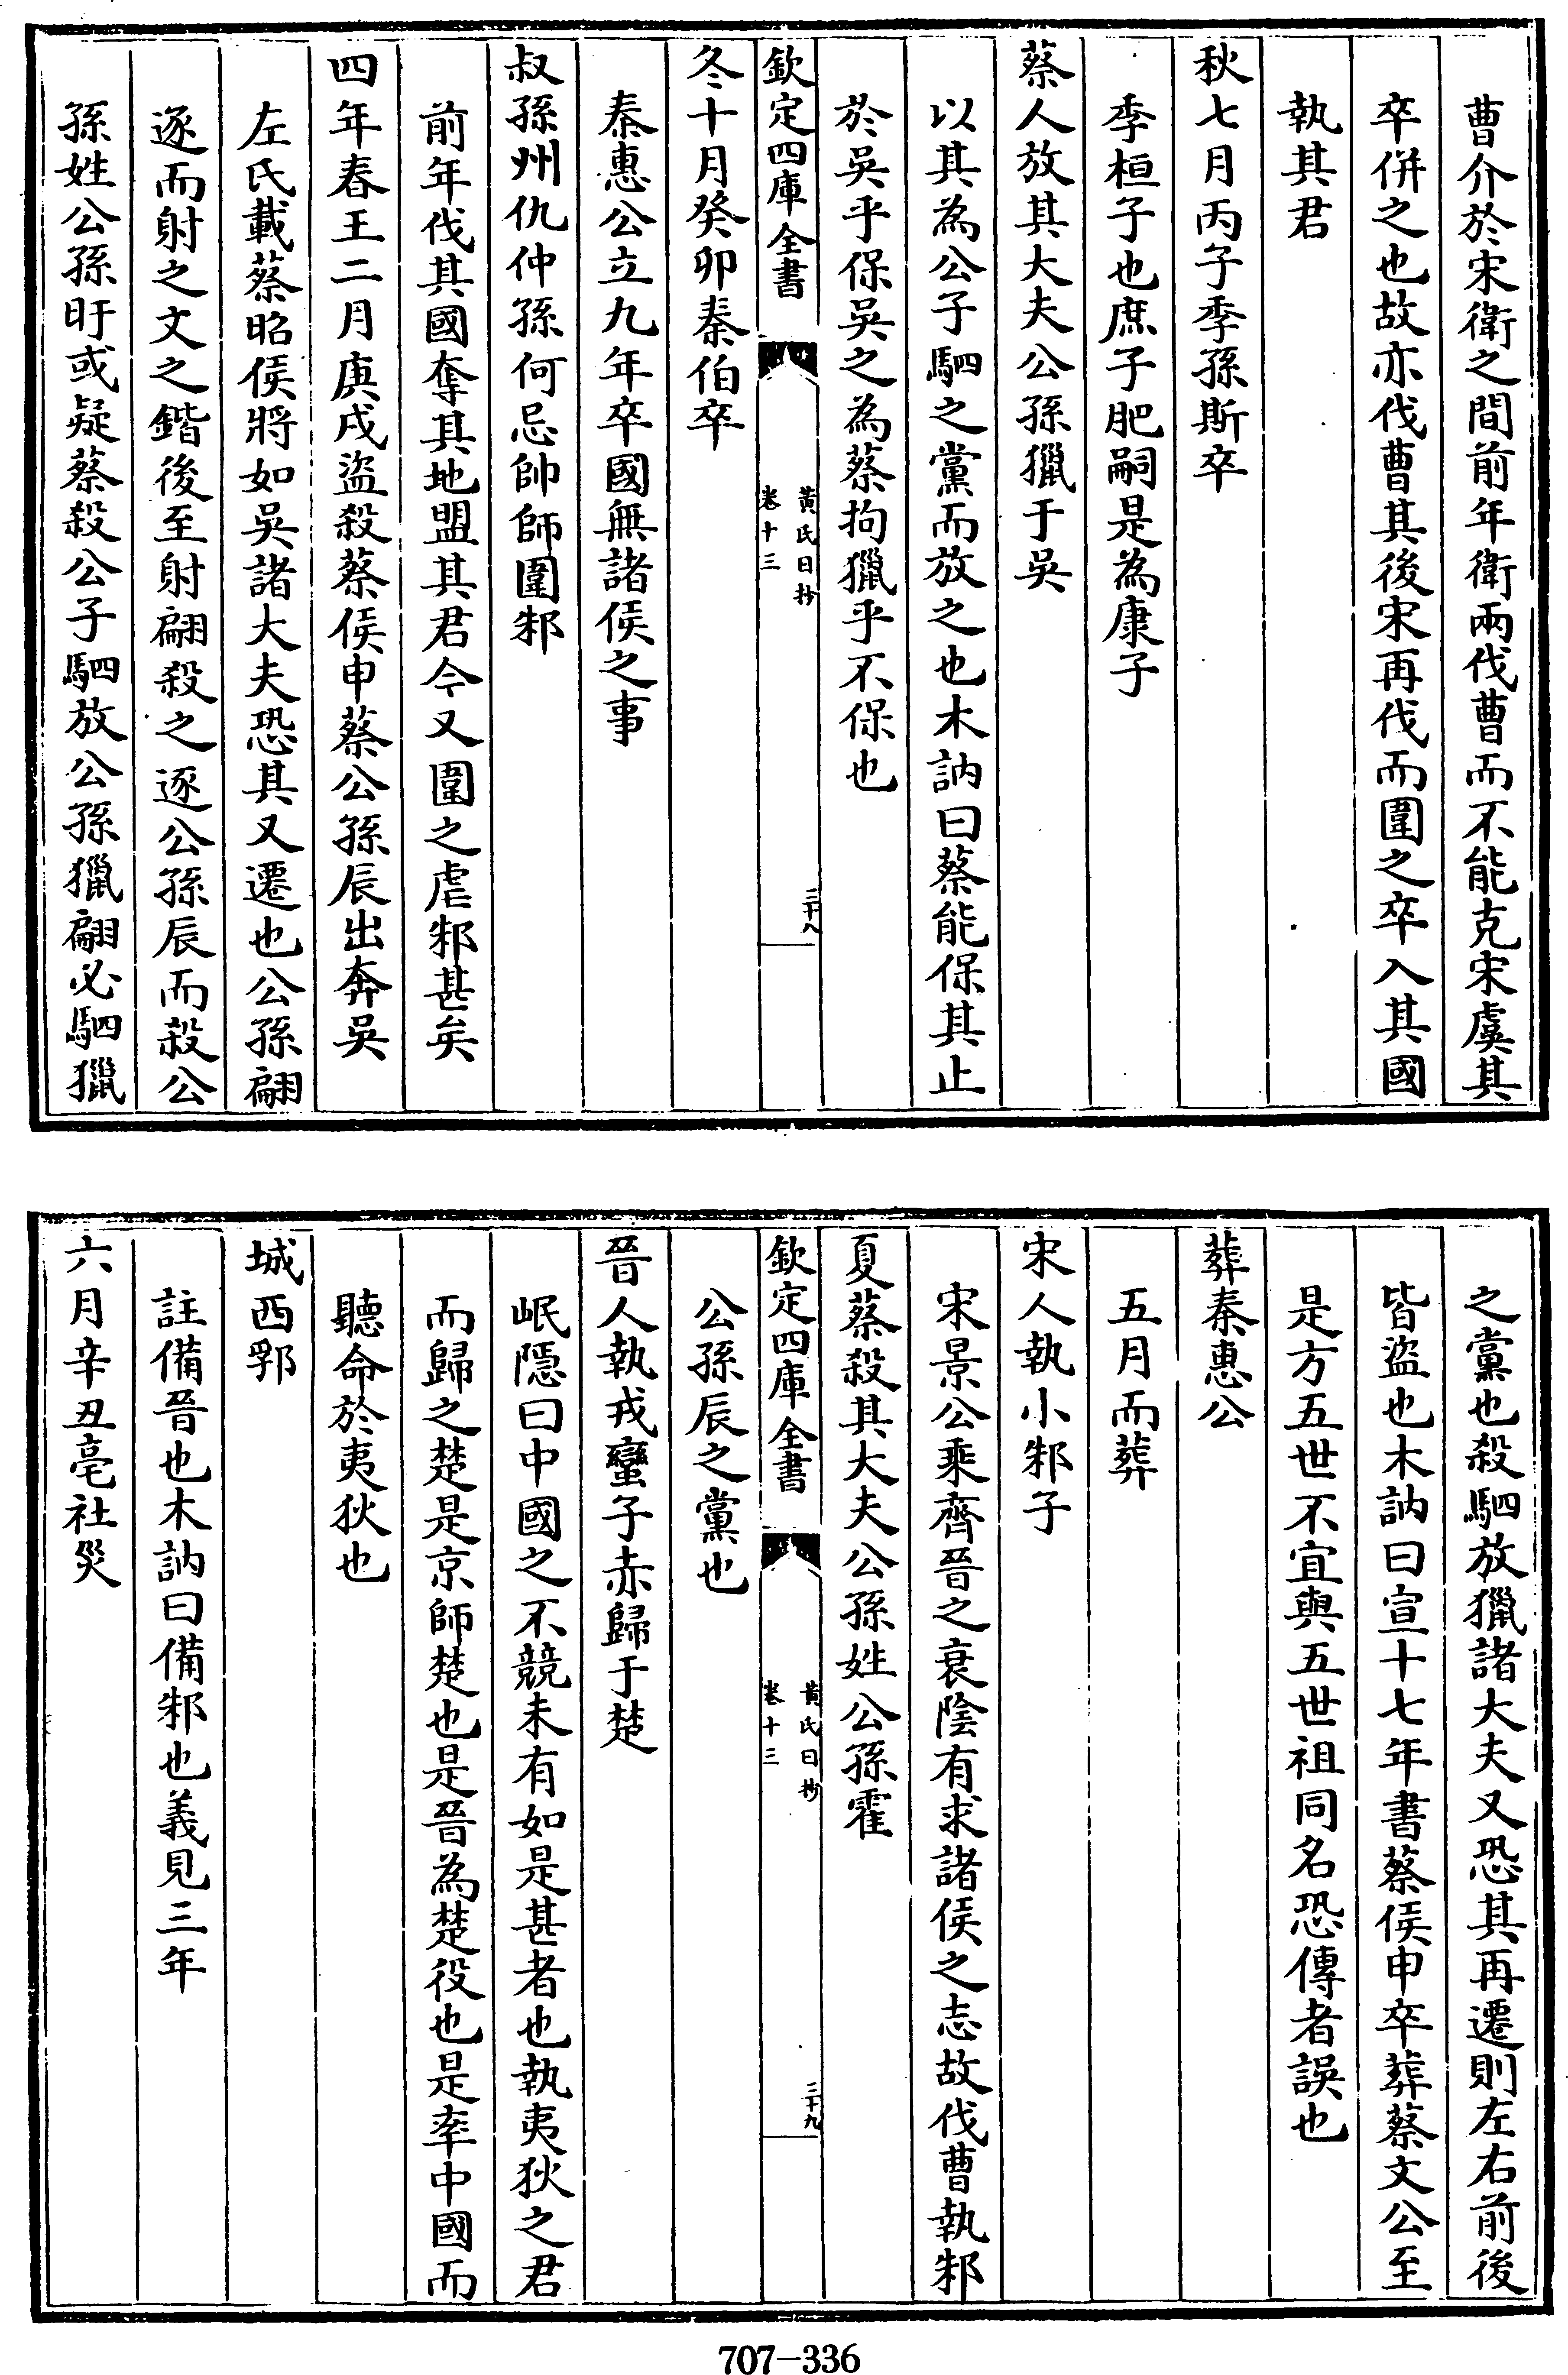 曹介於宋衛之間前年衛兩伐曹而不能克宋虞其
卒併之也故亦伐曹其後宋再伐而圍之卒入其國
執其君
秋七月丙子季孫斯卒
季桓子也庶子肥嗣是為康子
蔡人放其大夫公孫獵于吳
以其為公子駟之黨而放之也木訥曰蔡能保其止
於吳乎保吳之為蔡拘獵乎不保也
欽定四庫全書
黃氏日抄
卷十三
三十八
冬十月癸卯秦伯卒
秦惠公立九年卒國無諸侯之事
叔孫州仇仲孫何忌帥師圍邾
前年伐其國奪其地盟其君今又圍之虐邾甚矣
四年春王二月庚戌盜殺蔡侯申蔡公孫辰出奔吳
左氏載蔡昭侯將如吳諸大夫恐其又遷也公孫翩
逐而射之文之鍇後至射翩殺之逐公孫辰而殺公
孫姓公孫盱或疑蔡殺公子駟放公孫獵翩必駟獵
之黨也殺駟放獵諸大夫又恐其再遷則左右前後
皆盜也木訥曰宣十七年書蔡侯申卒葬蔡文公至
是方五世不宜與五世祖同名恐傳者誤也
葬秦惠公
五月而葬
宋人執小邾子
宋景公乘齊晉之衰陰有求諸侯之志故伐曹執邾
夏蔡殺其大夫公孫姓公孫霍
欽定四庫全書
黃氏日抄
卷十三
三十九
公孫辰之黨也
晉人執戎蠻子赤歸于楚
岷隱曰中國之不競未有如是甚者也執夷狄之君
而歸之楚是京師楚也是晉為楚役也是率中國而
聽命於夷狄也
城西郛
註備晉也木訥曰備邾也義見三年
六月辛丑亳社災
707-336